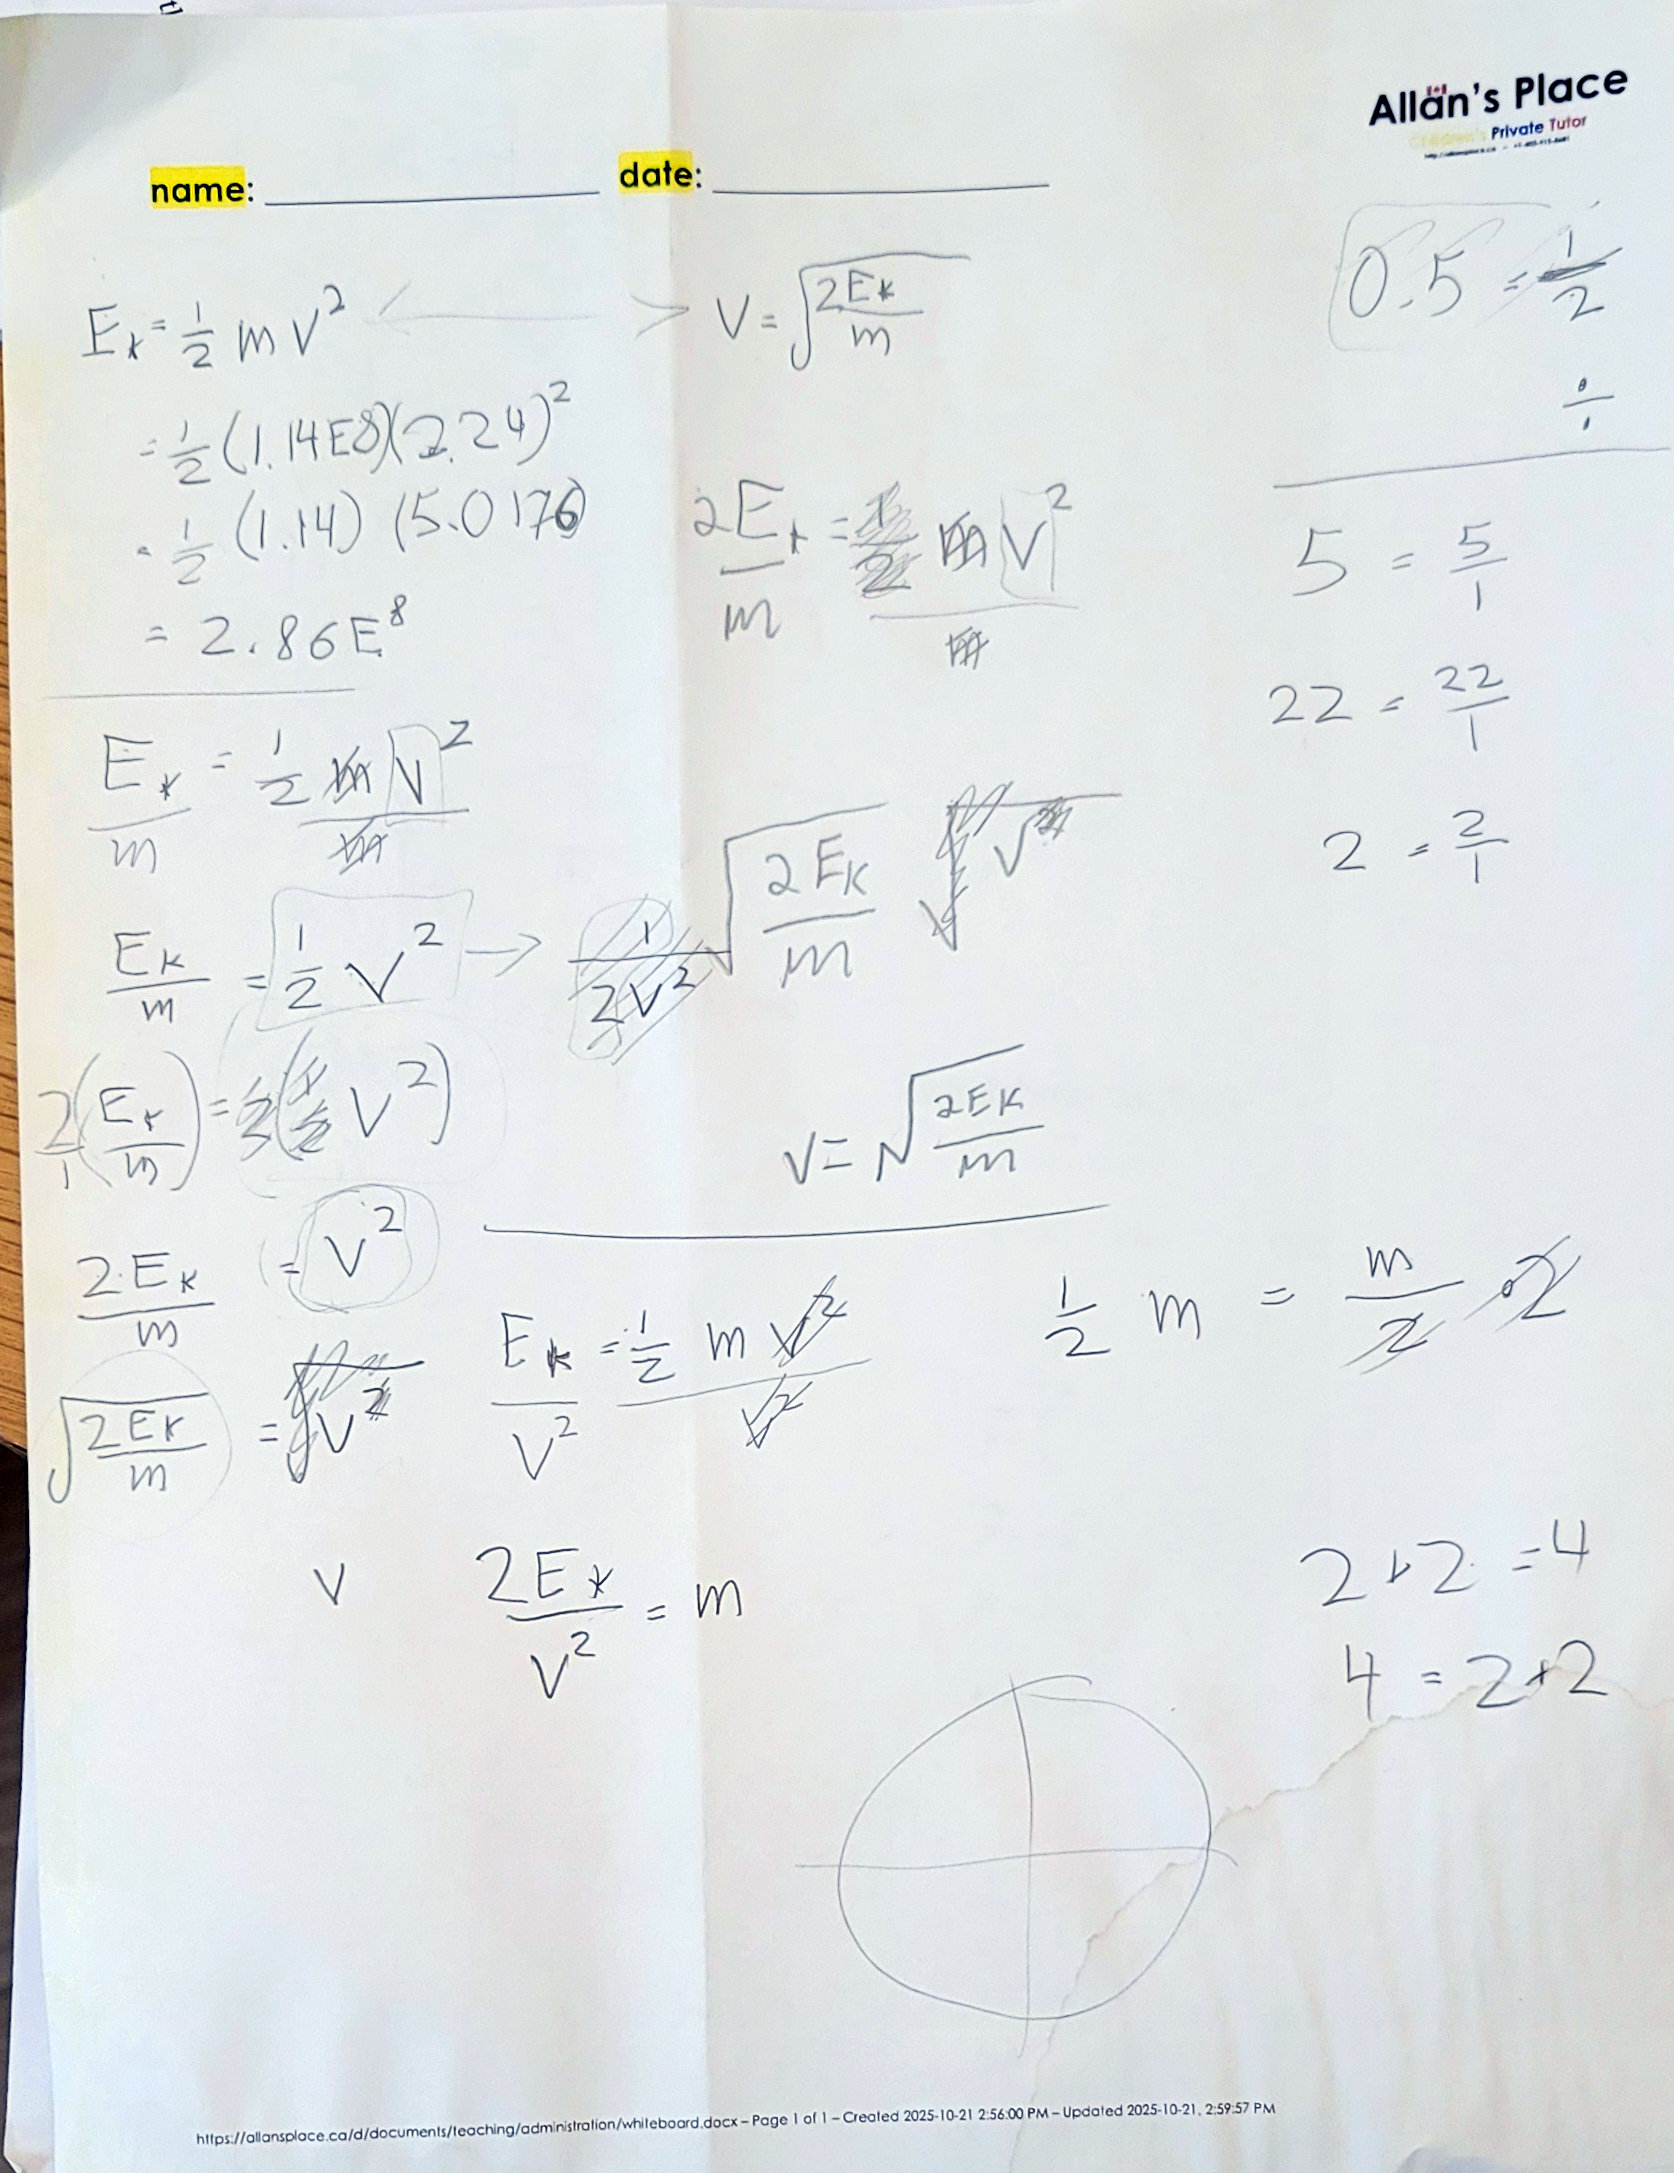 Allan's Place
Children's Private Tutor
name: ____________ date: ____________
E_k = 1/2 m v^2 <——> v = √(2E_k/m)
= 1/2 (1.14E8)(2.24)^2
= 1/2 (1.14) (5.0176)
= 2.86E^8
E_k/m = 1/2 m v^2/m
E_k/m = 1/2 v^2 →
2/1 (E_k/m) = 2(1/2 v^2)
2E_k/m = v^2
√(2E_k/m) = √v^2
v
2E_k/m = 1/2 m v^2/m
1/2v^2 √(2E_k/m) √v^2
v = √(2E_k/m)
E_k/v^2 = 1/2 m v^2/v^2
2E_k/v^2 = m
0.5 = 1/2
÷
5 = 5/1
22 = 22/1
2 = 2/1
1/2 m = m/2 · 2
2+2 = 4
4 = 2+2
https://allansplace.ca/d/documents/teaching/administration/whiteboard.docx – Page 1 of 1 – Created 2025-10-21 2:56:00 PM – Updated 2025-10-21, 2:59:57 PM